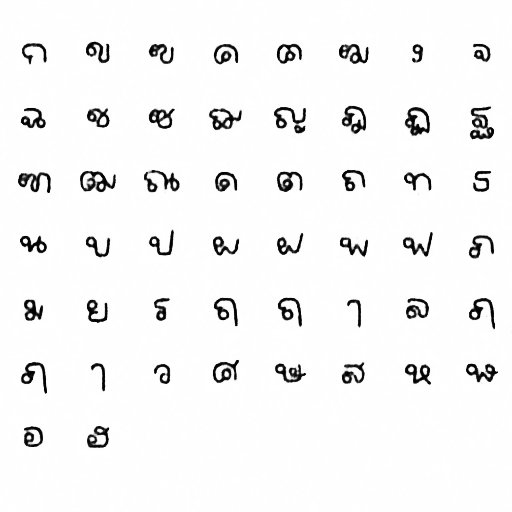 ก ข ฃ ค ฅ ฆ ง จ
ฉ ช ซ ฌ ญ ฎ ฏ ฐ
ฑ ฒ ณ ด ต ถ ท ธ
น บ ป ผ ฝ พ ฟ ภ
ม ย ร ฤ ฤ ๅ ล ฦ
ฦ ๅ ว ศ ษ ส ห ฬ
อ ฮ